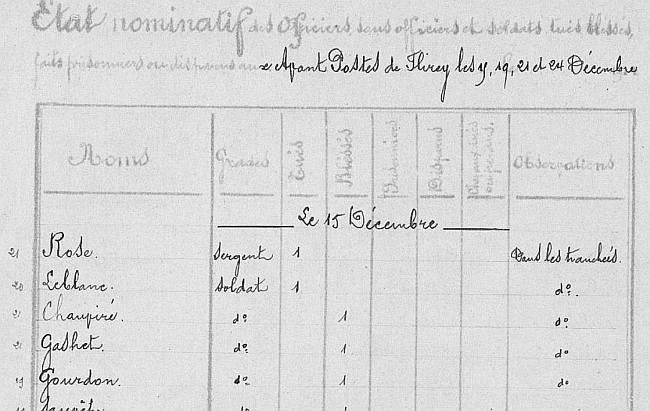 Etat nominatif des officiers, sous officiers et soldats tués, blessés,
faits prisonniers ou disparus aux Avant Postes de Flirey les 15, 19, 21 et 24 Décembre
Noms Grades Tués Blessés Prisonniers Disparus Observations
Le 15 Décembre
21 Rose. Sergent 1 Dans les tranchées.
20 Leblanc. Soldat 1 do.
21 Chaupiré. do 1 do
21 Gashet. do 1 do
19 Gourdon. do 1 do